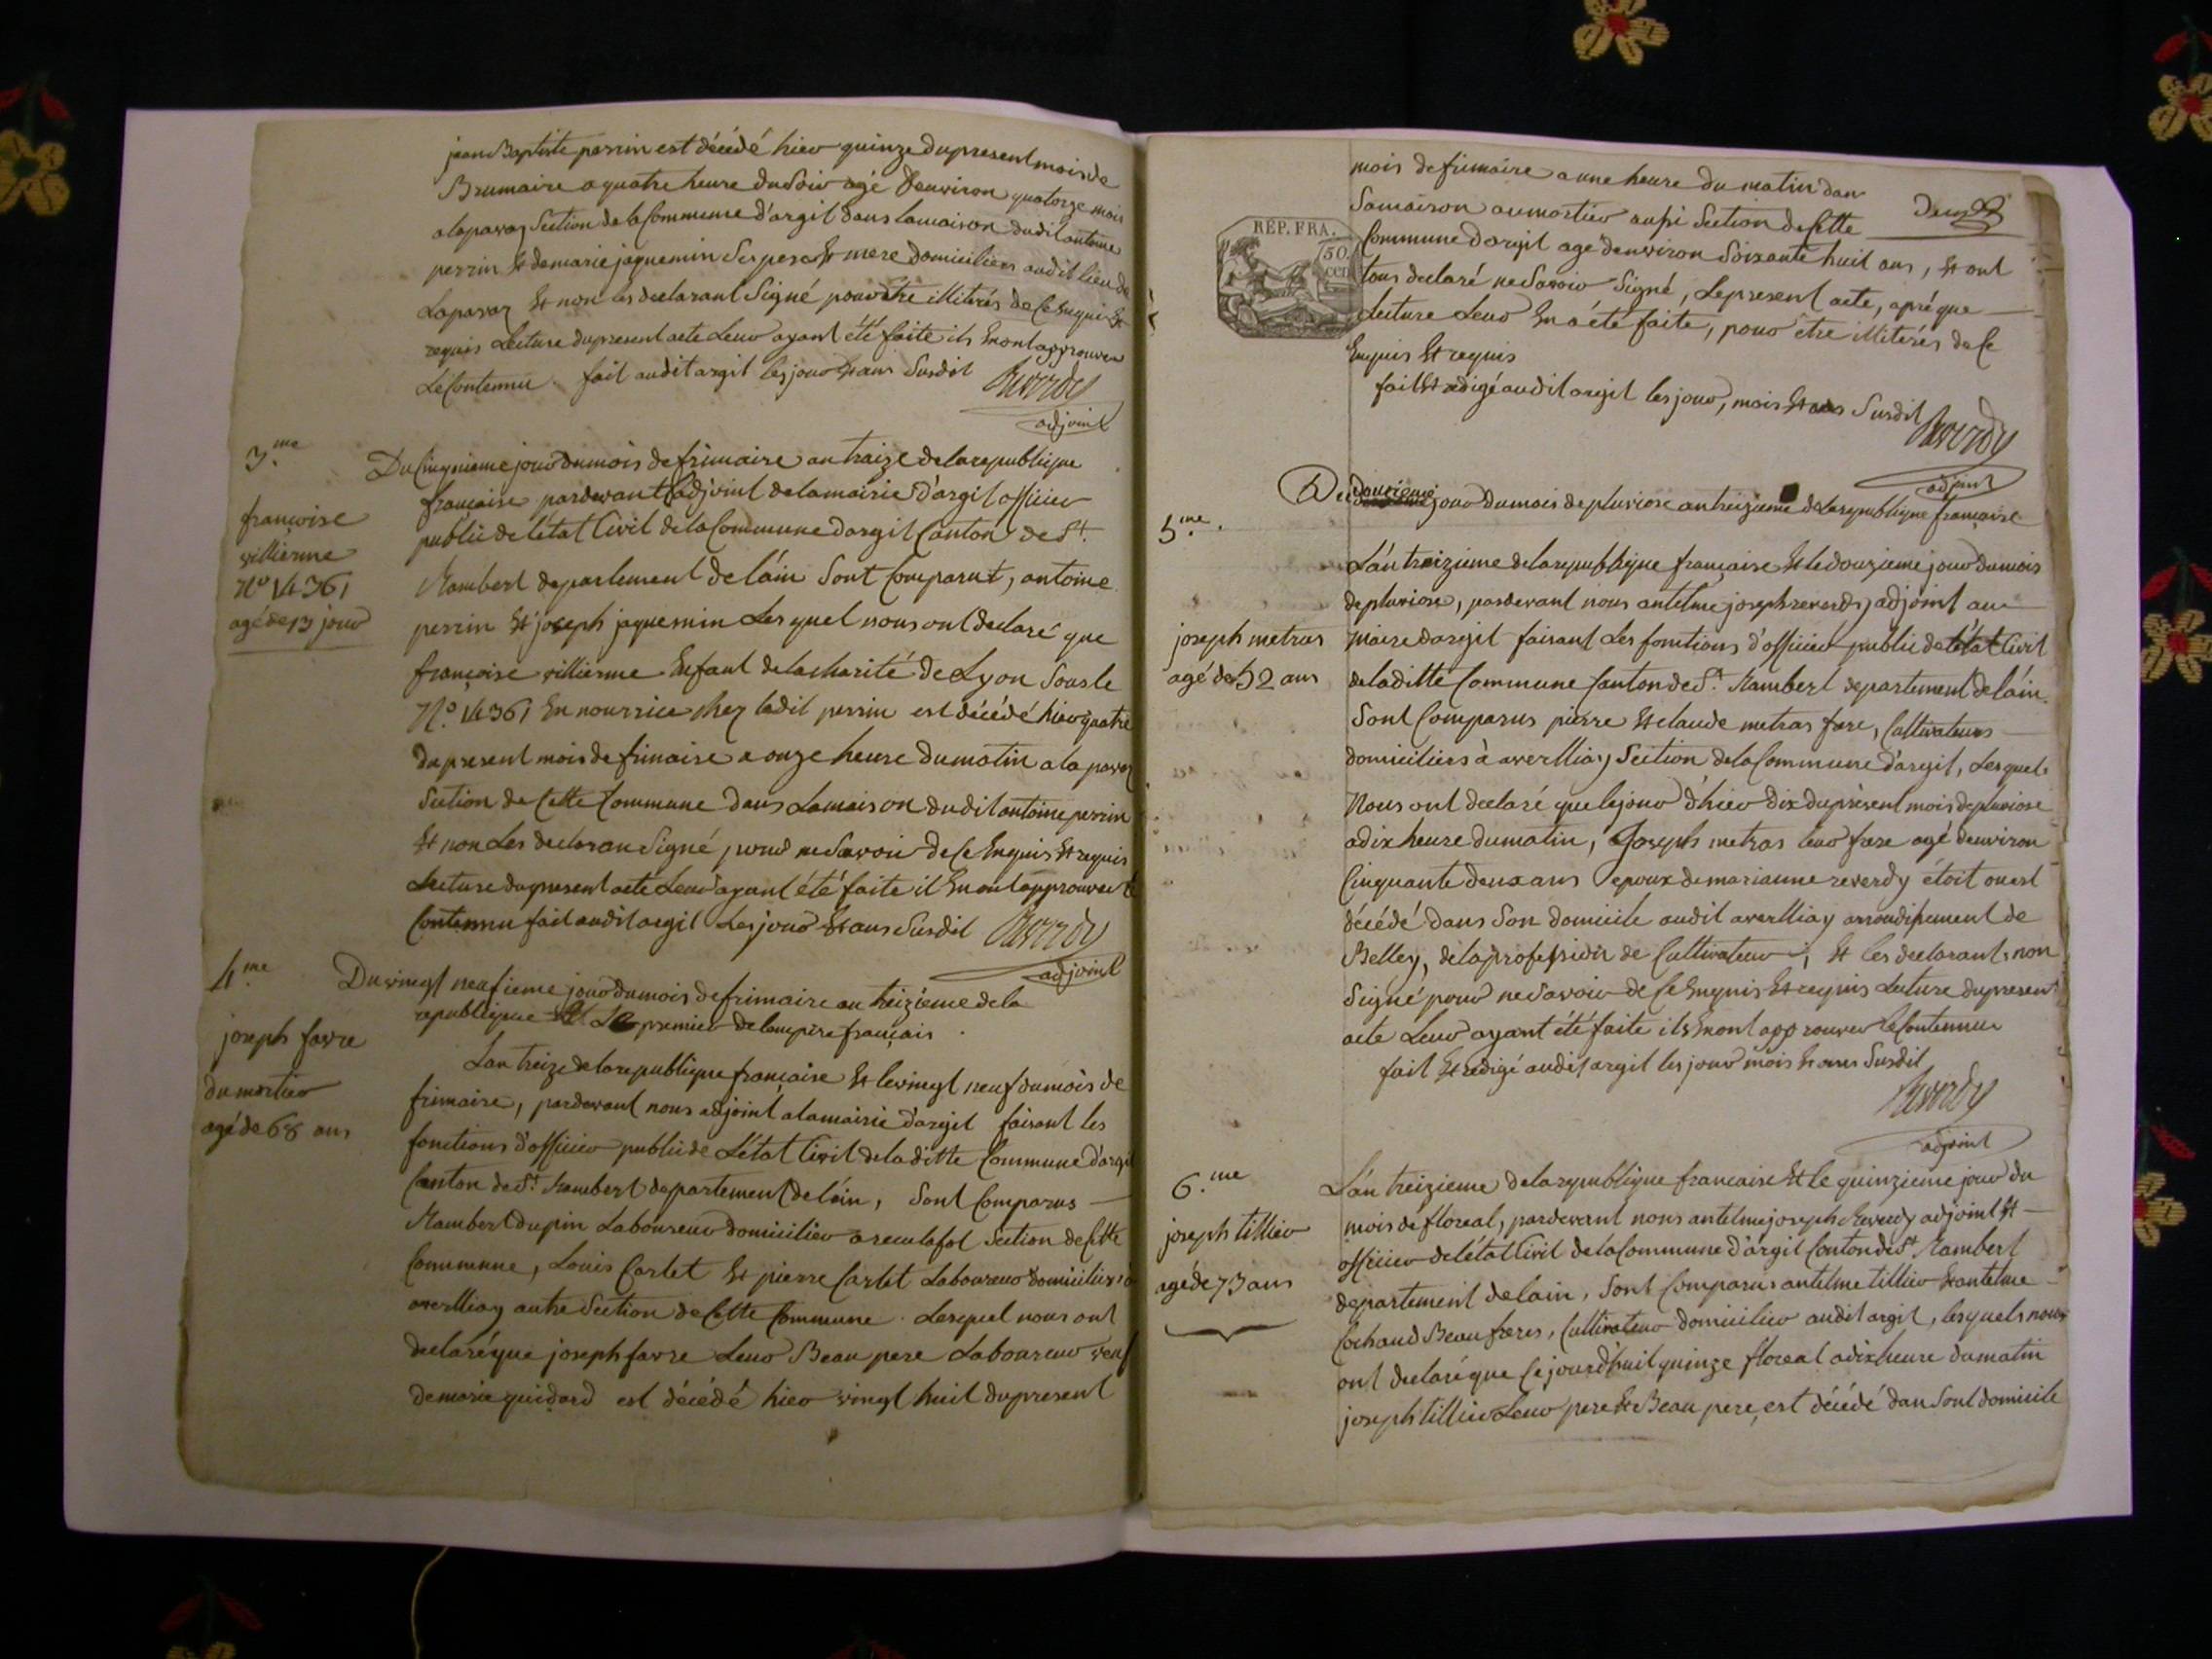 jean Baptiste perrin est décédé hier quinze du present mois de
Brumaire a quatre heure du Soir agé d'environ quatorze mois
a laparaz Section de la Commune d'argit dans la maison dudit antoine
perrin Et de marie jaquemin Ses pere Et mere domiciliers audit lieu de
Laparaz Et non les declarant Signé pour être illiterés de Ce Enquis Et
requis Lecture du present acte Leur ayant été faite ils En ont approuver
Le Contennu. fait audit argit les jour Et ans Susdit Reverdy
adjoint
3.me
françoise
villierme
N.o 14361
agé de 13 jour
Du Cinquieme jour du mois de frimaire an traize de la republique
française pardevant L'adjoint de la mairie d'argit officier
public de l'état Civil de la Commune d'argit Canton de St.
Rambert departement de l'ain Sont Comparut, antoine
perrin Et joseph jaquemin Les quel nous ont declaré que
françoise villierme Enfant de la charité de Lyon Sous le
N.o 14361 En nourrice chez ledit perrin est décédé hier quatre
du present mois de frimaire a onze heure du matin a la paraz
Section de Cette Commune dans La maison dudit antoine perrin
Et non Les declaran Signé pour ne Savoir de Ce Enquis Et requis
Lecture du present acte Leur ayant été faite il En ont approuver le
Contennu fait audit argit Les jour Et ans Susdit Reverdy
adjoint
4.me
joseph favre
du mortier
agé de 68 ans
Du vingt neufieme jour du mois de frimaire an treizieme de la
republique Et Le premier de l'empire français
L'an treize de la republique française Et le vingt neuf du mois de
frimaire, pardevant nous adjoint a la mairie d'argit faisant les
fonctions d'officier public de L'état Civil de la ditte Commune d'argit
Canton de St. Rambert departement de l'ain, Sont Comparus
Rambert dupin Laboureur domicilier a reculafol Section de Cette
Commune, Louis Carlet Et pierre Carlet Laboureur domiciliers a
averlliaz autre Section de Cette Commune. Lesquel nous ont
declaré que joseph favre Leur Beau pere Laboureur veuf
de marie guidard est décédé hier vingt huit du present
mois de frimaire a une heure du matin dan
Deux
RÉP. FRA.
50
cen
Sa maison au mortier aussi Section de Cette
Commune d'argit agé d'environ Soixante huit ans, Et ont
tous declaré ne Savoir Signé, Le present acte, apré que
Lecture Leur En a été faite, pour être illiterés de Ce
Enquis Et requis
fait Et redigé audit argit les jour, mois Et ans Susdit
Reverdy
adjoint
5.me
joseph metras
agé de 52 ans
Du douzieme jour du mois de pluviose an treizieme de la republique française
L'an treizieme de la republique française Et le douzieme jour du mois
de pluviose, pardevant nous antelme joseph reverdy adjoint au
maire d'argit faisant Les fonctions d'officier public de l'état Civil
de la ditte Commune Canton de St. Rambert departement de l'ain.
Sont Comparus pierre Et claude metras frere, Cultivateurs
domiciliers à averlliaz Section de la Commune d'argit, Lesquels
Nous ont declaré que le jour d'hier dix du present mois de pluviose
a dix heure du matin, Joseph metras leur frere agé d'environ
Cinquante deux ans epoux de marianne reverdy étoit
décédé dans Son domicile audit averlliaz arrondissement de
Belley, de la profession de Cultivateur, Et les declarants non
Signé pour ne Savoir de Ce Enquis Et requis Lecture du present
acte Leur ayant été faite ils En ont approuver le Contennu
fait Et redigé audit argit les jour mois Et ans Susdit
Reverdy
adjoint
6.me
joseph tillier
agé de 73 ans
L'an treizieme de la republique francaise Et le quinzieme jour du
mois de floreal, pardevant nous antelme joseph Reverdy adjoint Et
officier de l'état Civil de la Commune d'argit Canton de St. Rambert
departement de l'ain, Sont Comparus antelme tillier Et antelme
Cochaud Beau freres, Cultivateur domicilier audit argit, lesquels nous
ont declaré que Ce jourd'huit quinze floreal a dix heure du matin
joseph tillier Leur pere Et Beau pere, est décédé dan Sont domicile